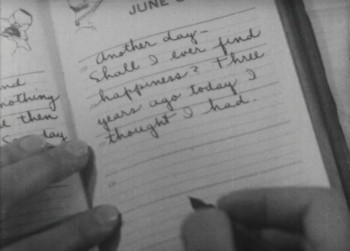 JUNE
Another day—
Shall I ever find
happiness? Three
years ago today I
thought I had.
and
nothing
then
day